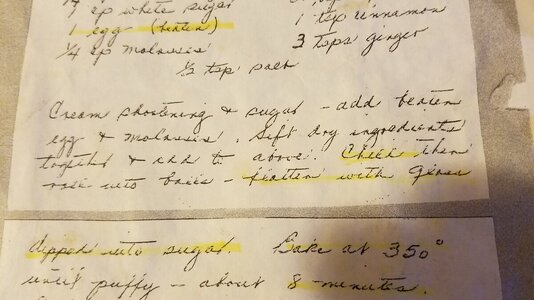 cp white sugar
1 tsp cinnamon
1 egg (beaten)
3 tsps ginger
¼ cp molassis
½ tsp salt
Cream shortening & sugar - add beaten
egg & molassis. Sift dry ingredients
together & add to above. Chill then
roll into balls - flatten with glass
dipped into sugar. Bake at 350°
until puffy - about 8 minutes.